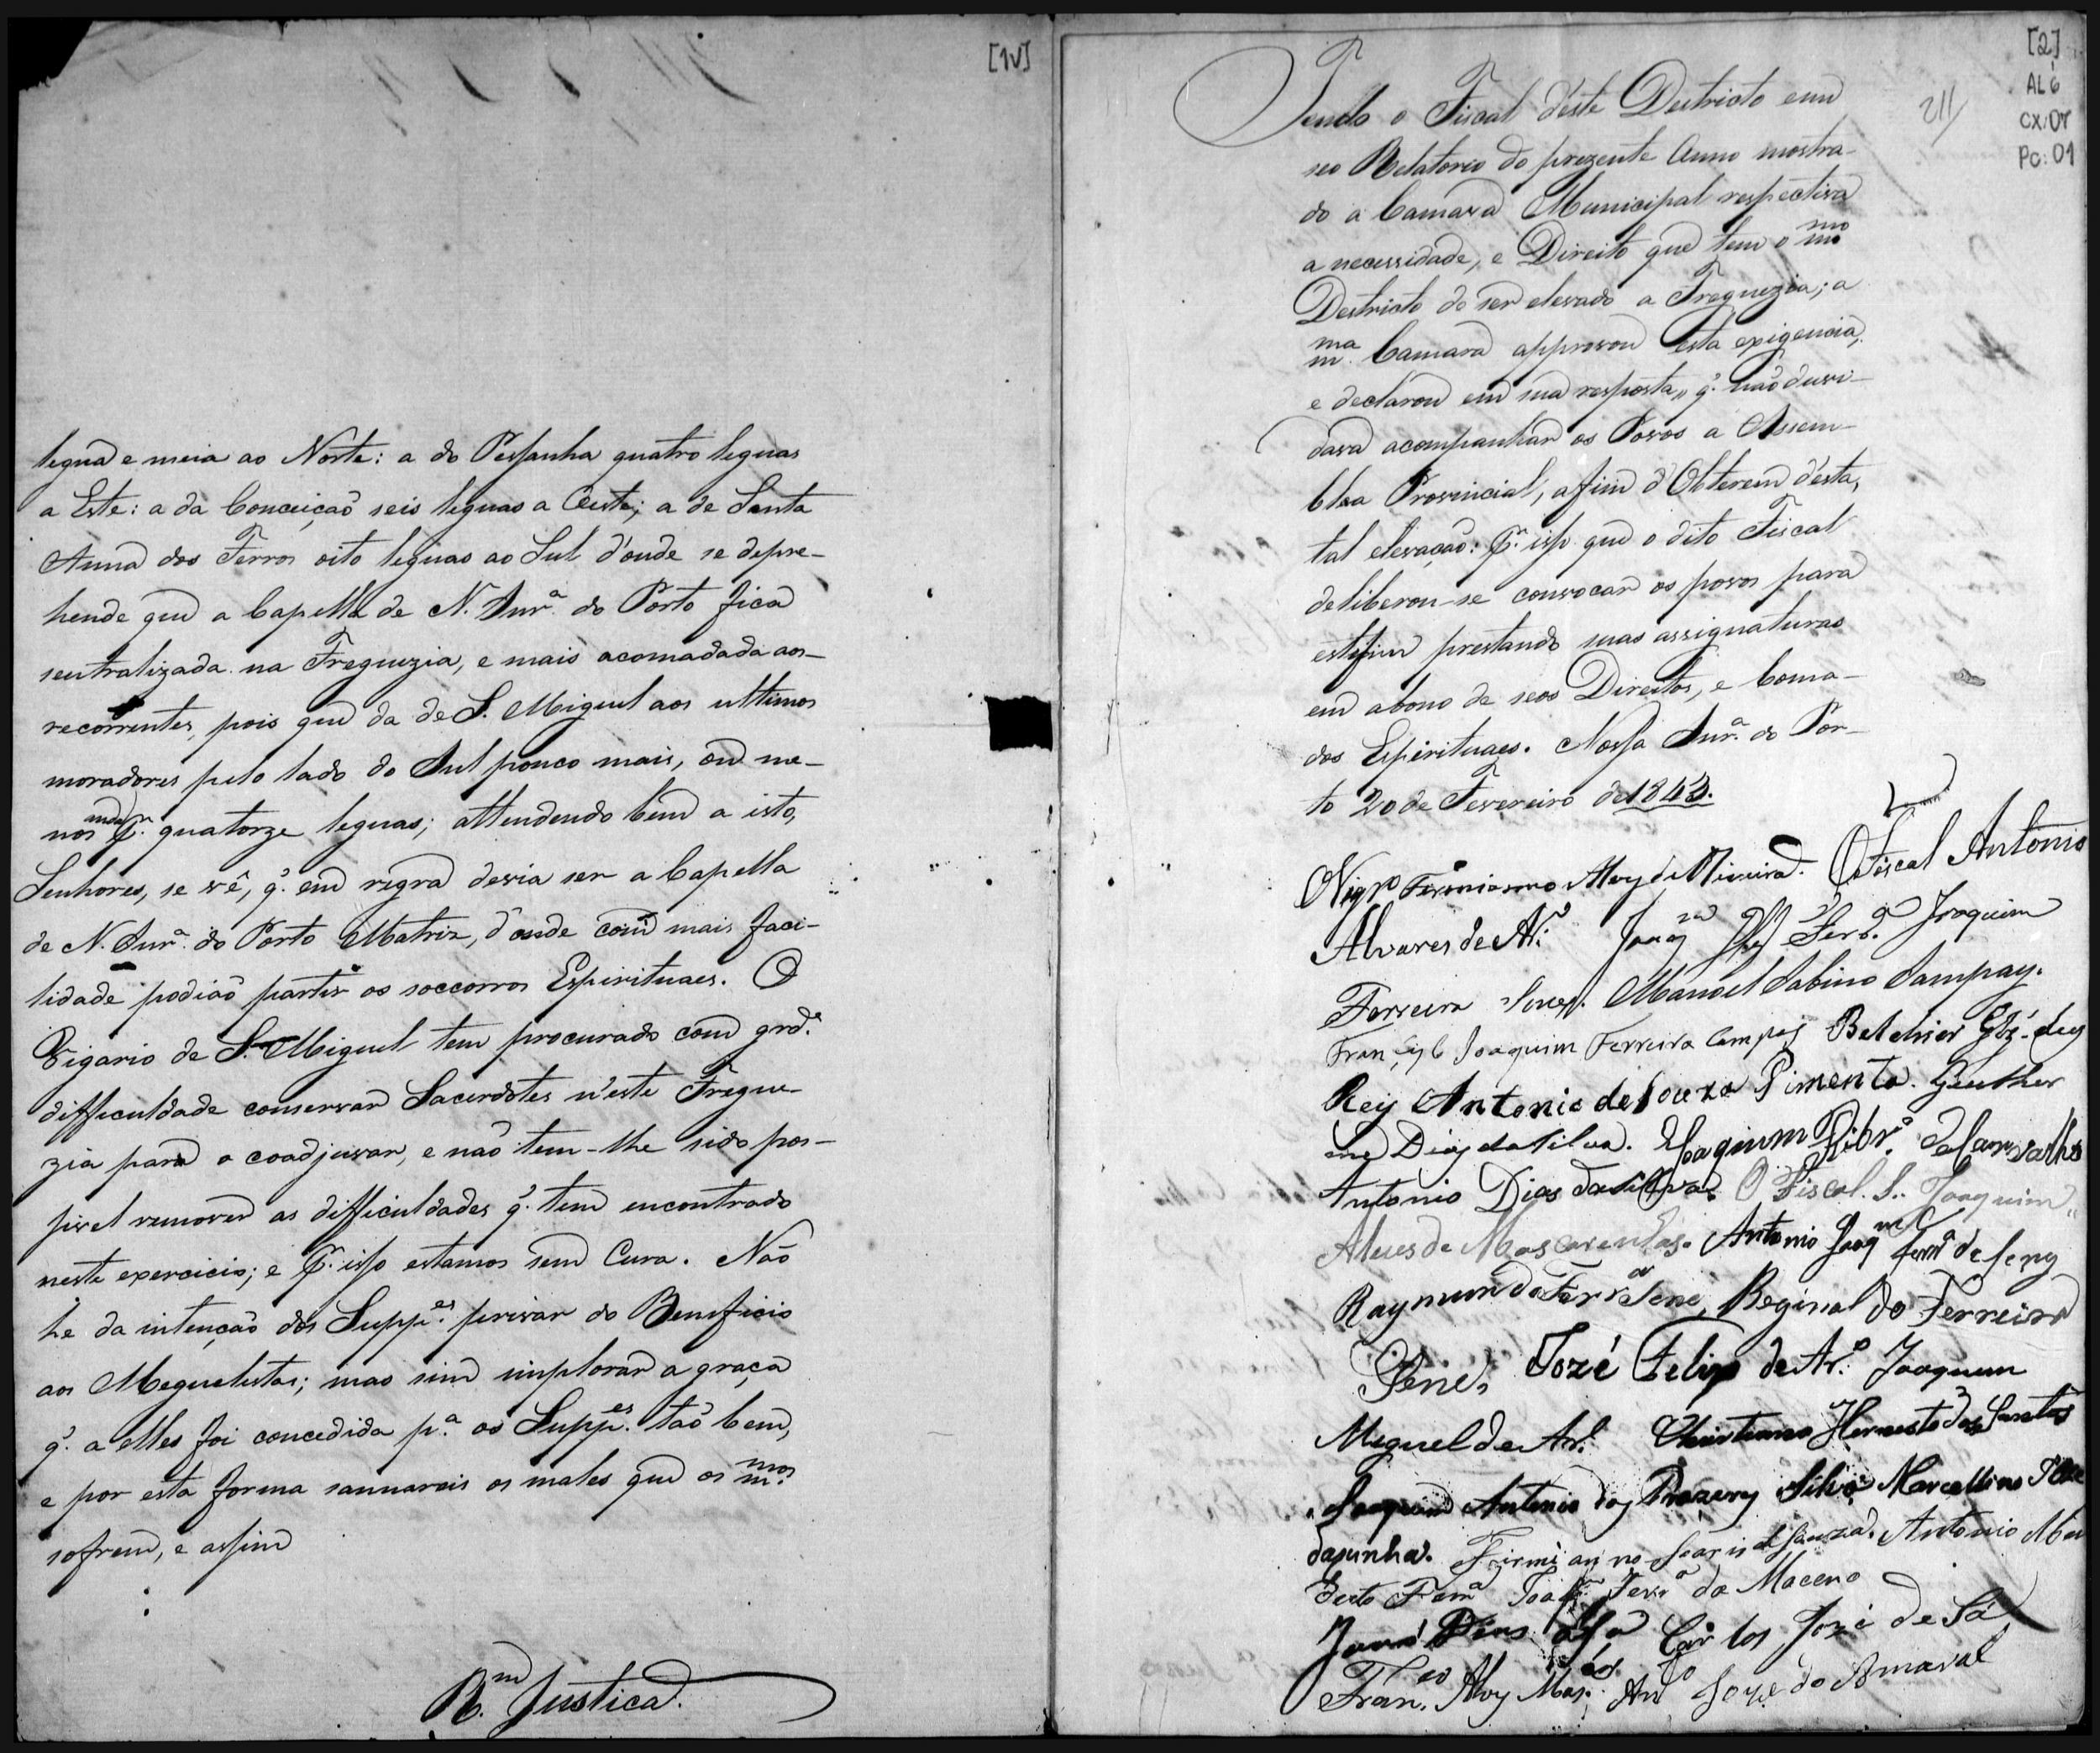 [1v]
legua e meia ao Norte: a do Pessanha quatro leguas
a Este: a da Conceição seis leguas a Oeste; a de Santa
Anna dos Ferros oito leguas ao Sul d'onde se depre-
hende que a Capella de N. Snrª. do Porto fica
sentralizada na Freguezia, e mais acomadada aos
recorrentes, pois que da de S. Miguel aos ultimos
moradores pelo lado do Sul pouco mais, ou me-
nos quatorze leguas; attendendo bem a isto,
Senhores, se vê, q. em regra devia ser a Capella
de N. Snrª. do Porto Matriz, d'onde com mais faci-
lidade podião partir os soccorros Espirituaes. O
Vigario de S. Miguel tem procurado com grde.
difficuldade conservar Sacerdotes n'este Fregue-
zia para o coadjuvar, e não tem-lhe sido pos-
sivel remover as difficuldades q. tem encontrado
neste exercicio; e P.r isso estamos sem Cura. Não
he da intenção dos Suppes. privar do Beneficio
aos Meguelistas; mas sim implorar a graça
q. a elles foi concedida pª. os Suppes. tão bem,
e por esta forma sannareis os males que os mmos.
sofrem, e assim
R.m Justica.
[2]
AL6
CX:07
PC:01
211
Tendo o Fiscal d'este Destricto em
seo Relatorio do prezente Anno mostra-
do a Camara Municipal respectiva
a necessidade, e Direito que tem o mmo
Destricto de ser elevado a Freguezia; a
mma. Camara approvou esta exigencia,
e declarou em sua resposta, q. não duvi-
dava acompanhar os Povos a Assem-
blea Provincial, afim d'Obterem d'esta,
tal elevação: P.r isso que o dito Fiscal
deliberou-se convocar os povos para
este fim prestando suas assignaturas
em abono de seos Direitos, e Coma-
dos Espirituaes. Nossa Snrª. do Por-
to 20 de Fevereiro de 1843.
O Fiscal Antonio
Alvares de Joaqm Joaquim
Ferreira Manoel Sabino Sampay.
Joaquim Ferreira Campos Belchior
Reis Antonio de Souza Pimenta. Guilher
me Dias da Silva. Joaquim Ribrº. de Carvalho
Antonio Dias da Silva. O Fiscal. S. Joaquim
Alves de Mascarenhas. Antonio Joaqm Ferrª de Seny
Raymundo Ferrª Sene, Reginaldo Ferreira
Sene, Jozé Felipe de Arº. Joaquim
Miguel de Arº. Christiano Hernesto dos Santos
Joaquim Antonio dos Prazeres Silva Marcellino
dacunha. Firmianno Soaris de Souza. Antonio
da Macena
Carlos Jozé de Sá
Franco. Alvs Antº Joze do Amaral